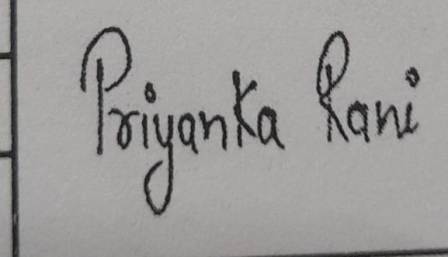 Priyanka Rani